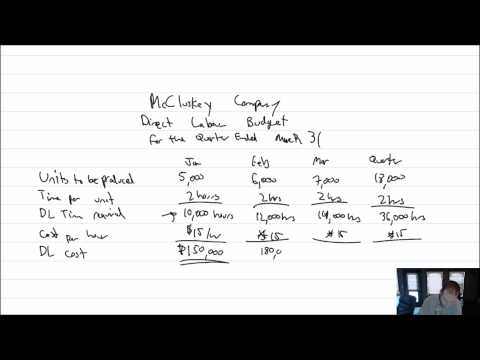 McCluskey Company
Direct Labour Budget
For the Quarter Ended March 31
Jan Feb Mar Quarter
Units to be produced 5,000 6,000 7,000 18,000
Time per unit 2 hours 2 hrs 2 hrs 2 hrs
DL Time required → 10,000 hours 12,000 hrs 14,000 hrs 36,000 hrs
Cost per hour $15/hr $15 $15 $15
DL cost $150,000 180,0